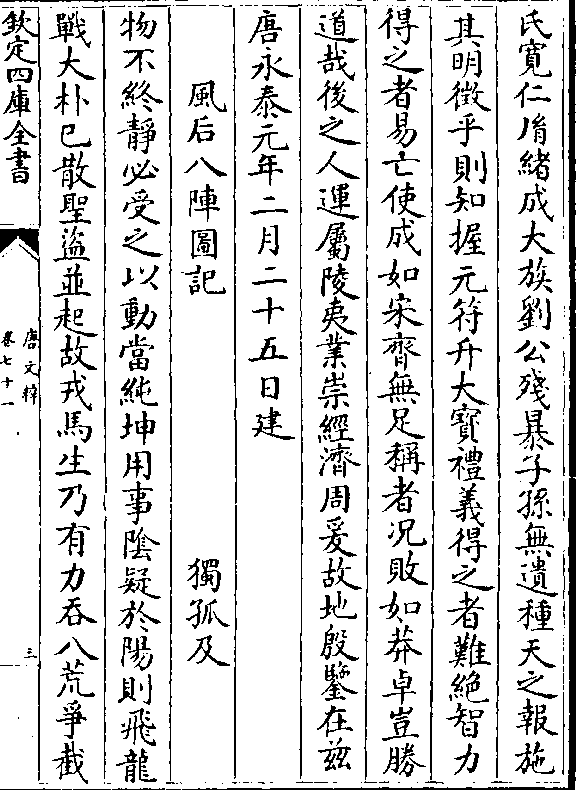 氏寛仁胤緒成大族劉公殘暴子孫無遺種天之報施
其明徴乎則知握元符升大寶禮義得之者難絶智力
得之者易亡使成如宋齊無足稱者况敗如莽卓豈勝
道哉後之人運屬陵夷業崇經濟周爰故地殷鑒在兹
唐永泰元年二月二十五日建
風后八陣圖記 獨孤及
物不終靜必受之以動當純坤用事陰疑於陽則飛龍
戰大朴已散聖盜並起故戎馬生乃有力吞八荒爭截
欽定四庫全書
唐文粹
卷七十一
三